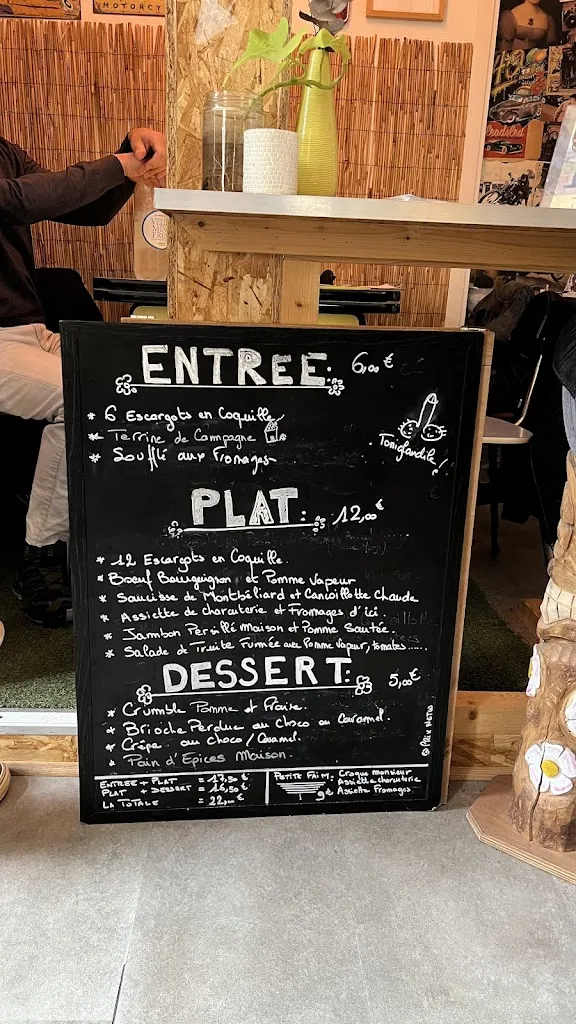 MOTORCY
ENTREE. 6,00 €
* 6 Escargots en Coquille
* Terrine de Campagne
* Soufflé aux Fromages
PLAT: 12,00 €
* 12 Escargots en Coquille.
* Boeuf Bourguignon et Pomme Vapeur
* Saucisse de Montbéliard et Cancoillotte Chaude
* Assiette de charcuterie et Fromages d'ici.
* Jambon Persillé Maison et Pomme Sautée.
* Salade de Truite Fumée avec Pomme Vapeur, tomates.....
DESSERT: 5,00 €
* Crumble Pomme et Fraise.
* Brioche Perdue au choco ou Caramel.
* Crêpe: au choco / Caramel
* Pain d'Epices Maison.
ENTREE + PLAT = 17,50 €
PLAT + DESSERT = 16,50 €
LA TOTALE = 22,00 €
PETITE FAIM: Croque Monsieur
Assiette charcuterie
9€ Assiette Fromages.
PRIX NETS